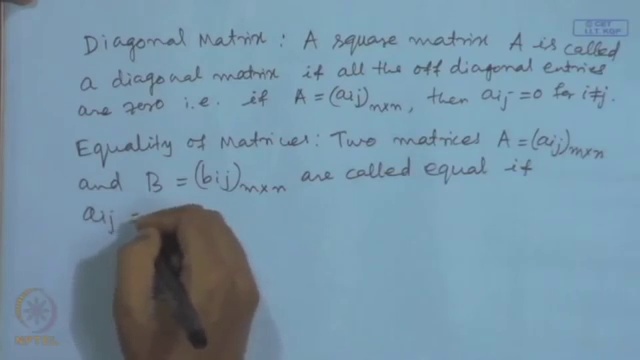 © CET
I.I.T. KGP
Diagonal Matrix : A square matrix A is called
a diagonal matrix if all the off diagonal entries
are zero i.e. if A = (aij)n×n, then aij = 0 for i≠j.
Equality of Matrices: Two matrices A = (aij)m×n
and B = (bij)m×n are called equal if
aij =
NPTEL